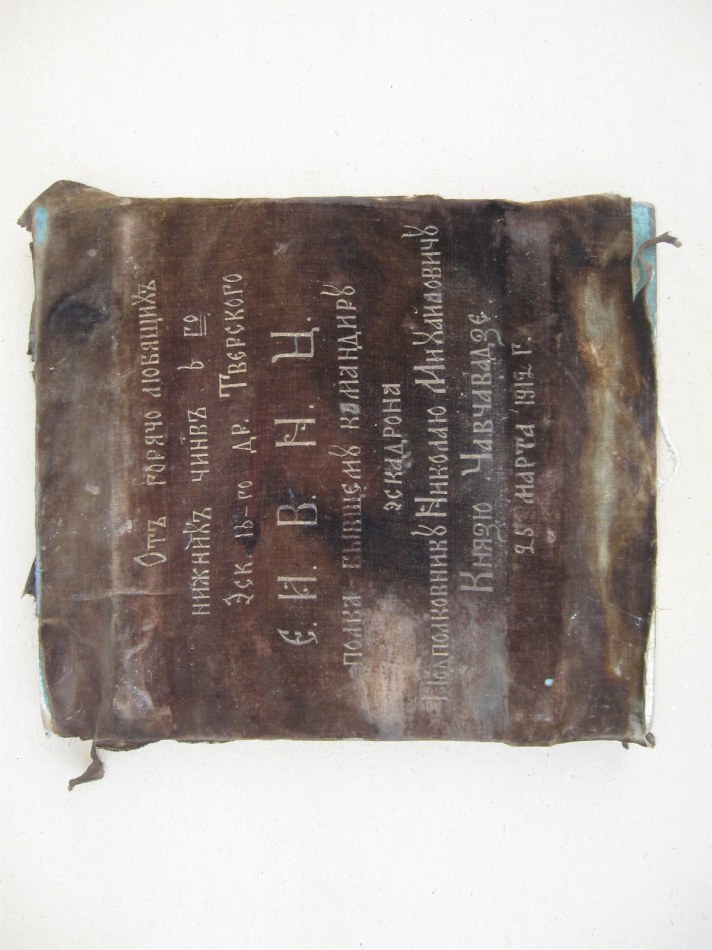 Отъ горячо любящихъ
нижникъ чинвъ в го
Эск. 15-го др. Тверского
Е. И. В. Н. Ц.
полка - бывшему командиру
эскадрона
Подполковнику Николаю Михайловичу
Князю Чавчавадзе
25 марта 1912 г.